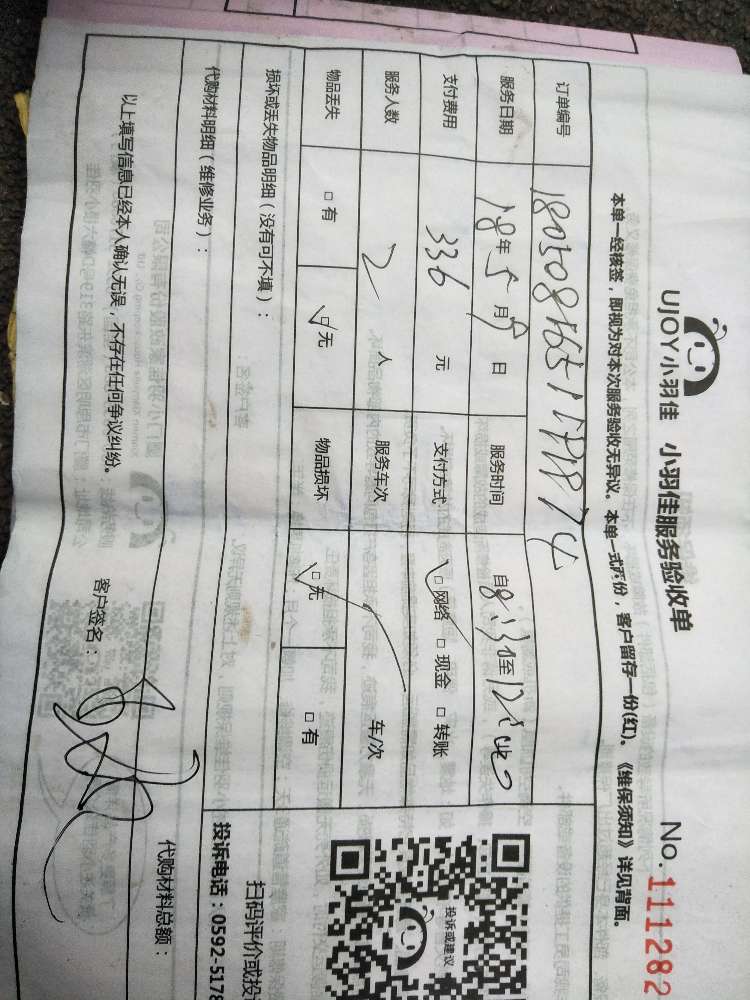 UJOY小羽佳 小羽佳服务验收单
No.111282
本单一经核签，即视为对本次服务验收无异议。本单一式两份，客户留存一份(红)。《维保须知》详见背面。
订单编号
服务日期 18年5月9日 服务时间 自8:30至12:00
支付费用 336元 支付方式 □网络 □现金 □转账
服务人数 2人 服务车次 车/次
物品丢失 □有 □无 物品损坏 □无 □有
损坏或丢失物品明细（没有可不填）：
代购材料明细（维修业务）：
代购材料总额：
以上填写信息已经本人确认无误，不存在任何争议纠纷。
客户签名：
投诉或建议
扫码评价或投
投诉电话：0592-5178